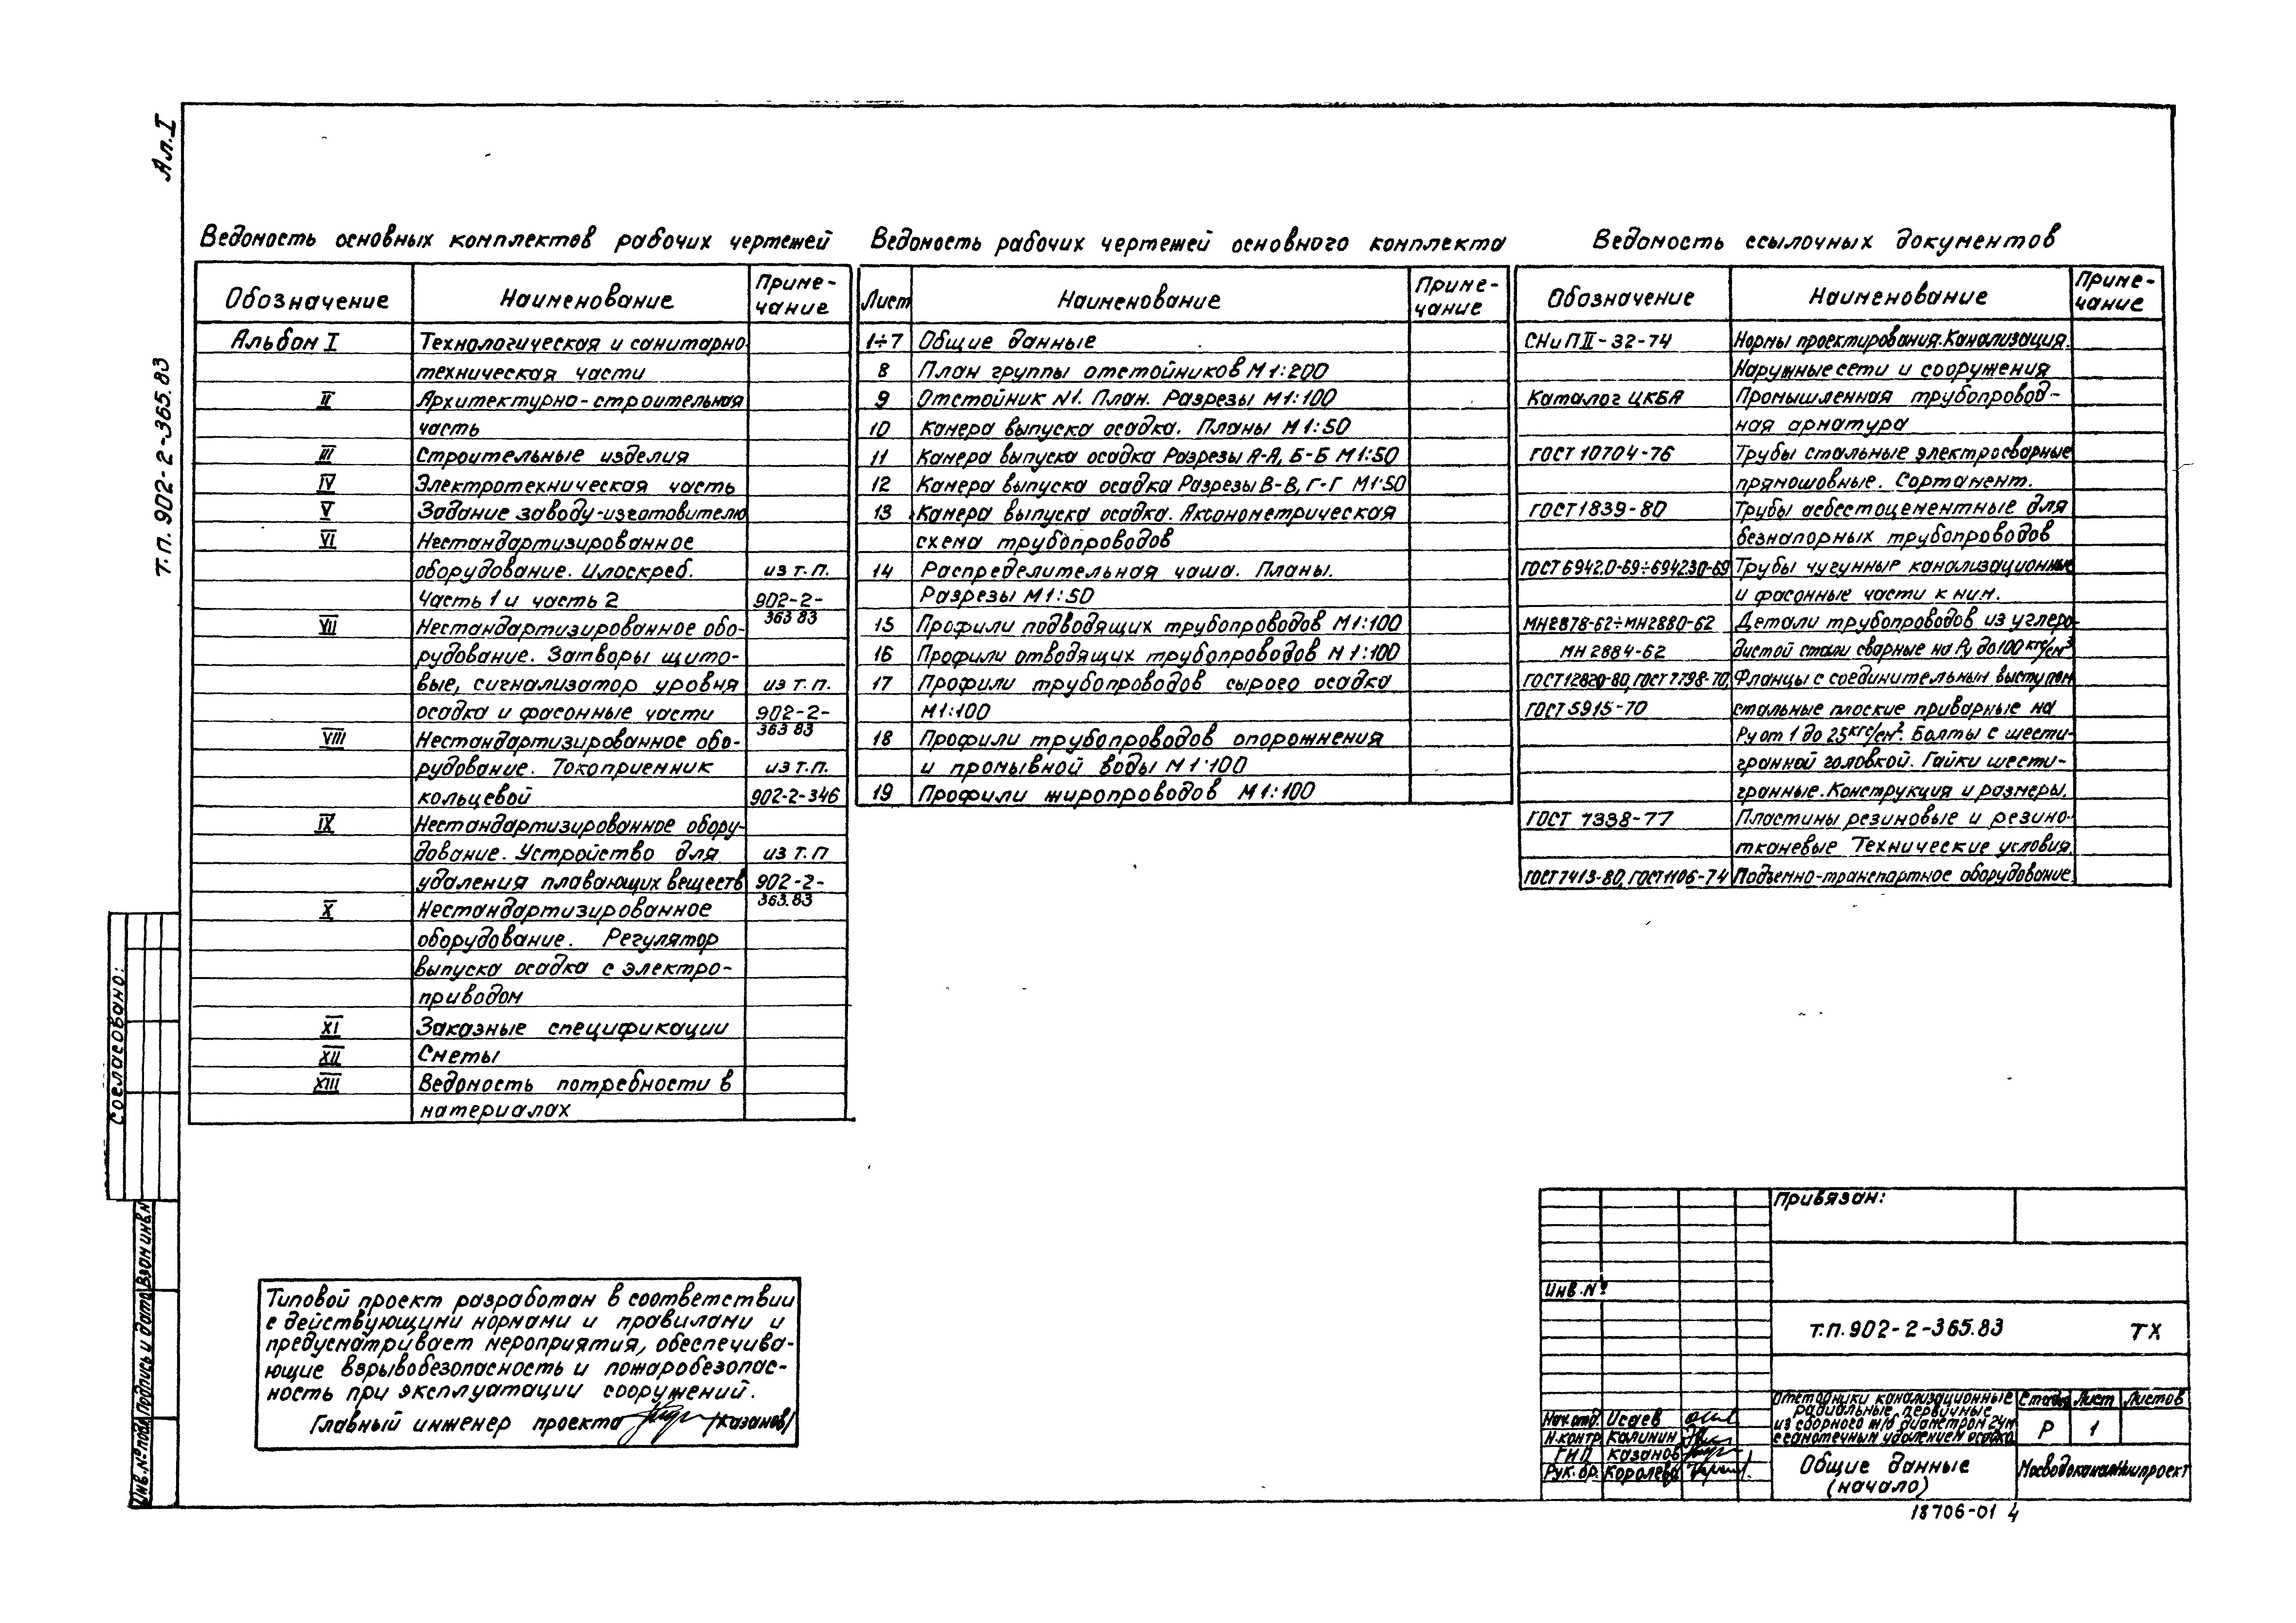 Ал. I
Т.п. 902-2-365.83
Ведомость основных комплектов рабочих чертежей
Обозначение Наименование Приме-
чание
Альбом I Технологическая и санитарно-
техническая части
II Архитектурно-строительная
часть
III Строительные изделия
IV Электротехническая часть
V Задание заводу-изготовителю
VI Нестандартизированное
оборудование. Илоскреб. из т.п.
Часть 1 и часть 2 902-2-
363 83
VII Нестандартизированное обо-
рудование. Затворы щито-
вые, сигнализатор уровня из т.п.
осадка и фасонные части 902-2-
363 83
VIII Нестандартизированное обо-
рудование. Токоприемник из т.п.
кольцевой 902-2-346
IX Нестандартизированное обору-
дование. Устройство для из т.п
удаления плавающих веществ 902-2-
363.83
X Нестандартизированное
оборудование. Регулятор
выпуска осадка с электро-
приводом
XI Заказные спецификации
XII Сметы
XIII Ведомость потребности в
материалах
Ведомость рабочих чертежей основного комплекта
Лист Наименование Приме-
чание
1÷7 Общие данные
8 План группы отстойников М 1:200
9 Отстойник N1. План. Разрезы М 1:100
10 Камера выпуска осадка. Планы М 1:50
11 Камера выпуска осадка Разрезы А-А, Б-Б М 1:50
12 Камера выпуска осадка Разрезы В-В, Г-Г М 1:50
13 Камера выпуска осадка. Аксонометрическая
схема трубопроводов
14 Распределительная чаша. Планы.
Разрезы М 1:50
15 Профили подводящих трубопроводов М 1:100
16 Профили отводящих трубопроводов М 1:100
17 Профили трубопроводов сырого осадка
М 1:100
18 Профили трубопроводов опорожнения
и промывной воды М 1:100
19 Профили жиропроводов М 1:100
Ведомость ссылочных документов
Обозначение Наименование Приме-
чание
СНиП II-32-74 Нормы проектирования. Канализация.
Наружные сети и сооружения
Каталог ЦКБА Промышленная трубопровод-
ная арматура
ГОСТ 10704-76 Трубы стальные электросварные
прямошовные. Сортамент.
ГОСТ 1839-80 Трубы асбестоцементные для
безнапорных трубопроводов
ГОСТ 6942.0-69÷6942.30-69 Трубы чугунные канализационные
и фасонные части к ним.
МН2878-62÷МН2880-62 Детали трубопроводов из углеро-
МН 2884-62 дистой стали сварные на Ру до 100 кгс/см²
ГОСТ 12820-80, ГОСТ 7798-70, Фланцы с соединительным выступом
ГОСТ 5915-70 стальные плоские приварные на
Ру от 1 до 25 кгс/см². Болты с шести-
гранной головкой. Гайки шести-
гранные. Конструкция и размеры.
ГОСТ 7338-77 Пластины резиновые и резино-
тканевые Технические условия.
ГОСТ 7413-80, ГОСТ 1106-74 Подъемно-транспортное оборудование.
Согласовано:
Взам инв.№
Подпись и дата
Инв.№ подл.
Типовой проект разработан в соответствии
с действующими нормами и правилами и
предусматривает мероприятия, обеспечива-
ющие взрывобезопасность и пожаробезопас-
ность при эксплуатации сооружений.
Главный инженер проекта /Казанов/
Привязан:
Инв. №
Т.п. 902-2-365.83 ТХ
Отстойники канализационные
радиальные первичные
из сборного ж/б диаметром 24м
с самотечным удалением осадка
Стадия Лист Листов
Р 1
Нач.отд. Исаев
Н.контр. Калинин
ГИП Казанов
Рук.бр. Королева
Общие данные
(начало)
МосводоканалНИИпроект
18706-01 4